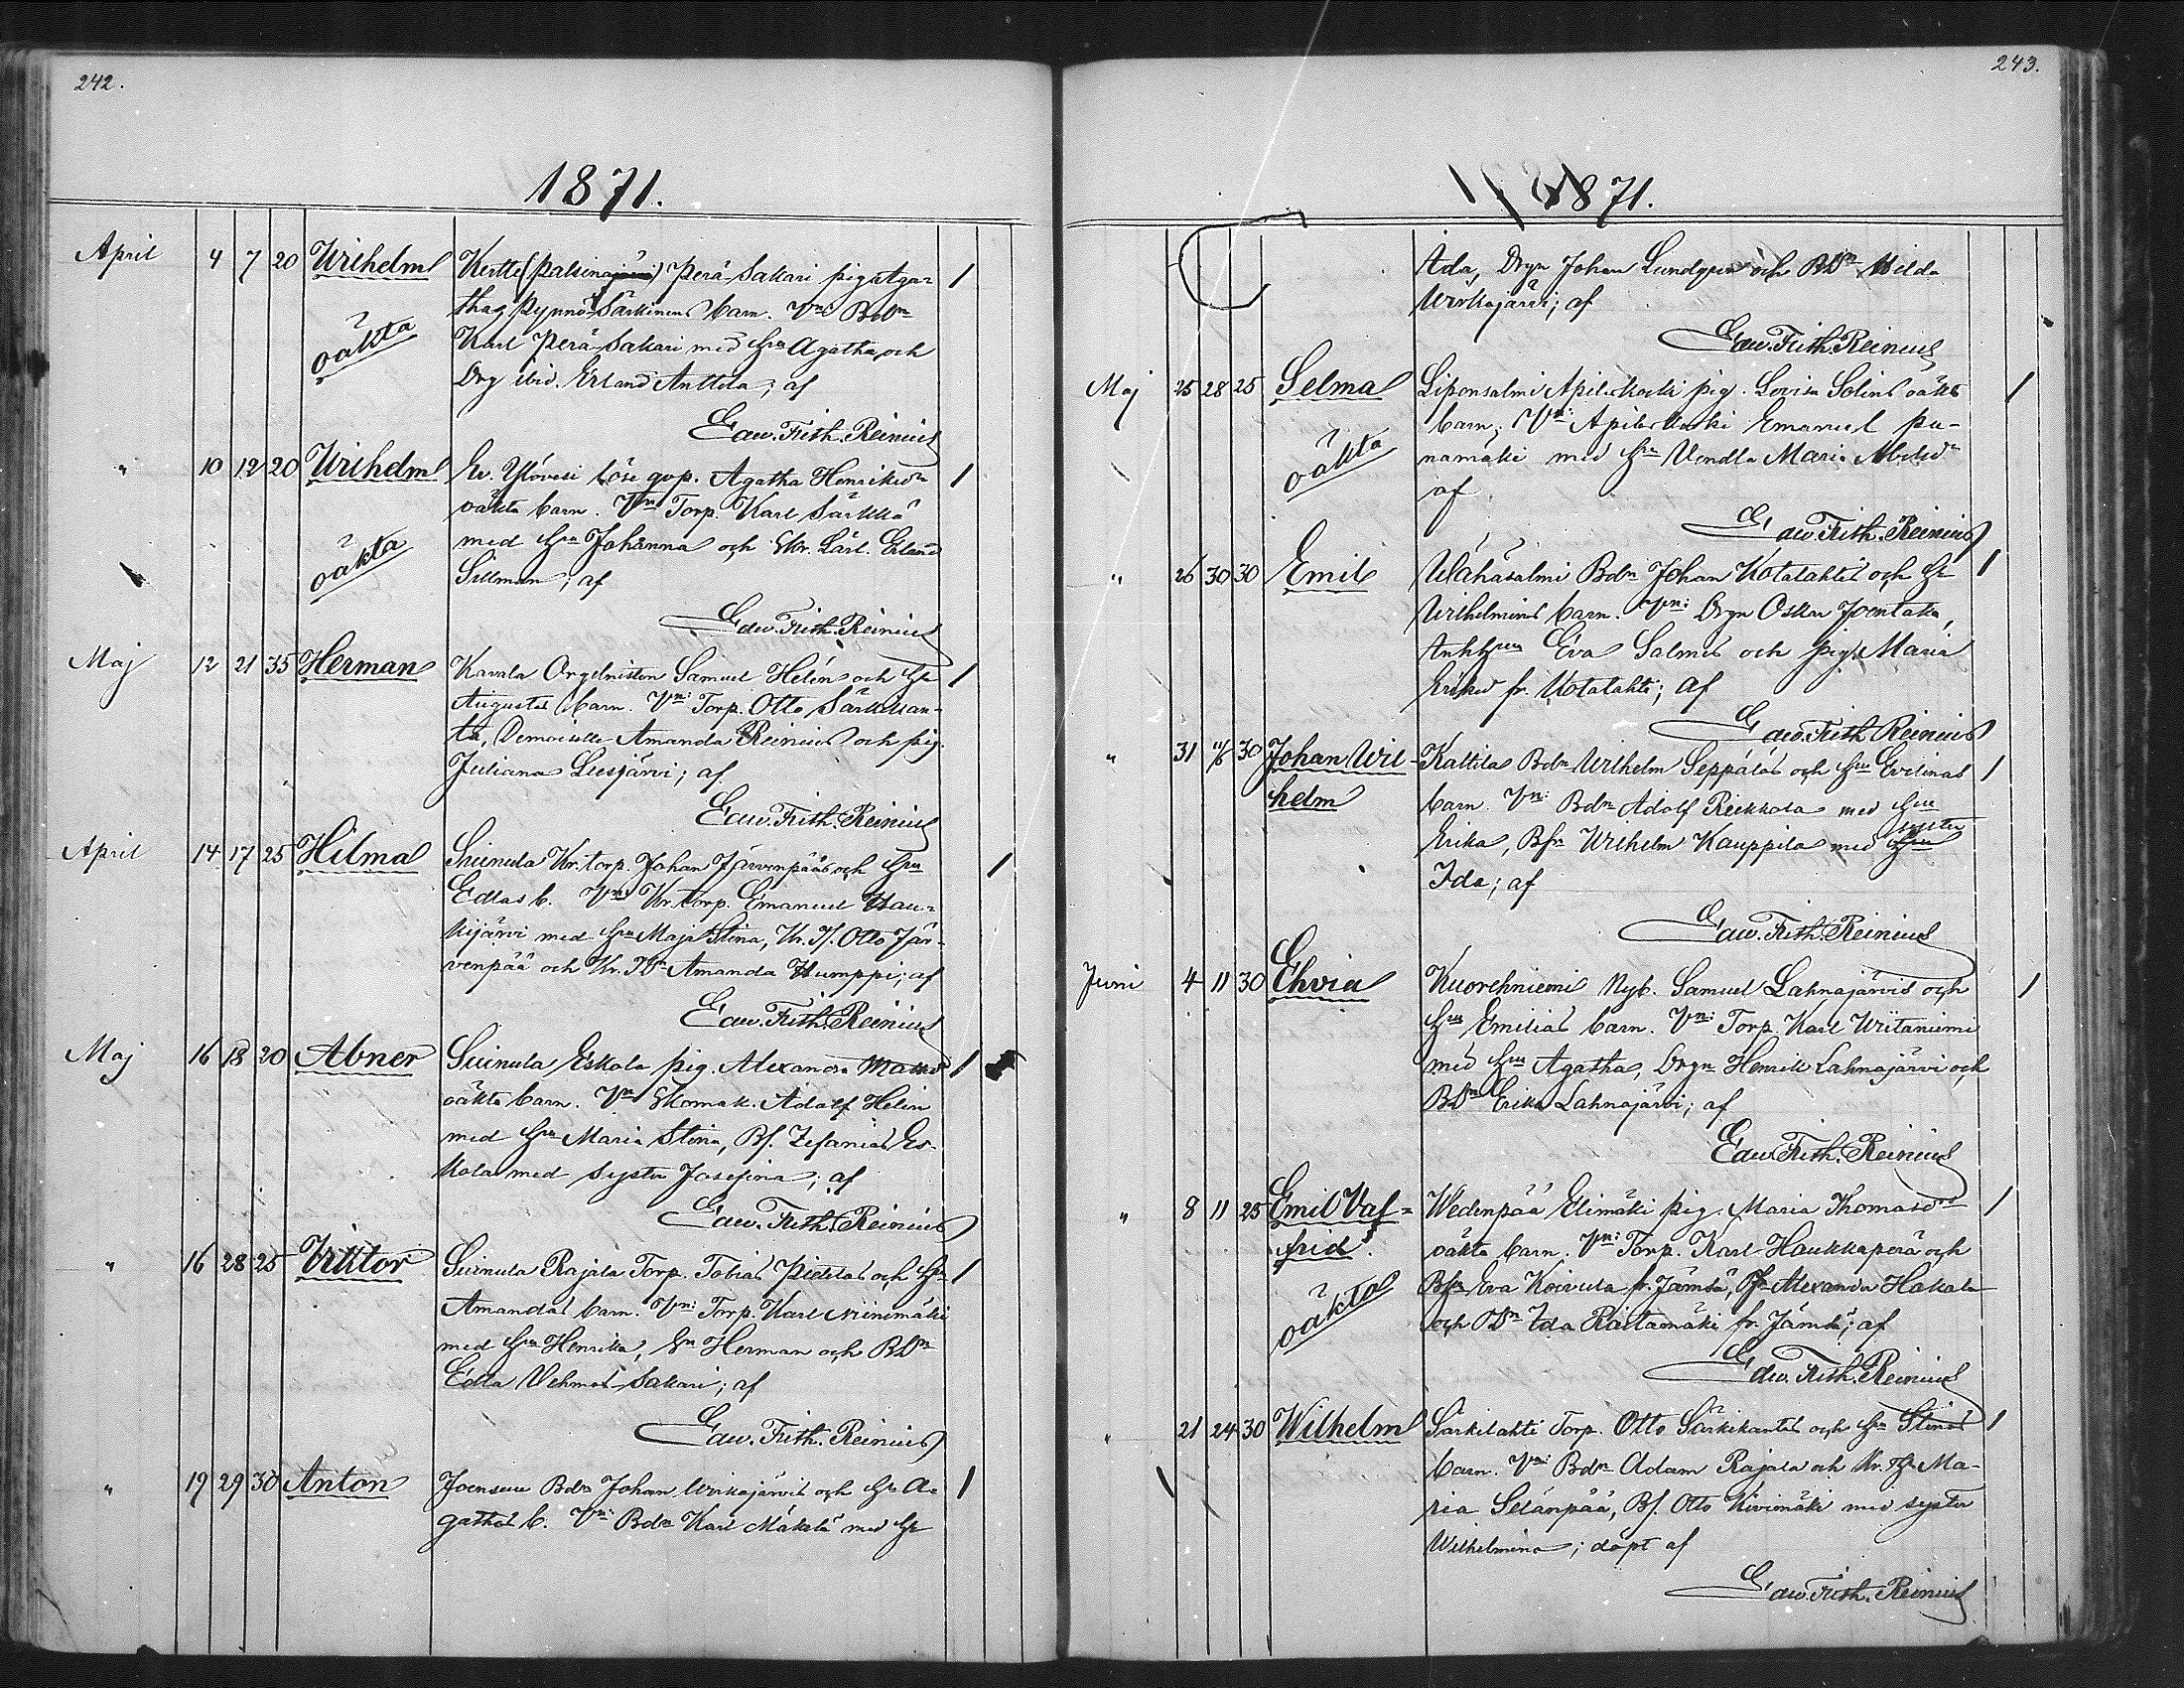 242.
1871.
April 4 7 20 Wilhelm Kertte (Palsinajärvi) Perä-Sakari pig. Aga-
thas Pynnö Särkinens barn. Vn: Bdn
oäkta Karl Perä-Sakari med hu Agatha och
Drg ibid. Erland Anttila; af
Edw. Frith. Reinius
" 10 12 20 Wilhelm Ev. Ylövesi löse qvp. Agatha Henriksdr
oäkta barn. Vn: Torp. Karl Särkkä
oäkta med hu Johanna och Skr. Lärl. Erland
Sillman; af
Edw. Frith. Reinius
Maj 12 21 35 Herman Kavala Orgelnisten Samuel Helén och hu
Augustas barn. Vn: Torp. Otto Särkikan-
ta, Demoiselle Amanda Reinius och pig.
Juliana Liesjärvi; af
Edw. Frith. Reinius
April 14 17 25 Hilma Suinula Kr. torp. Johan Järvenpääs och hu
Edlas b. Vn: Kr. torp. Emanuel Hau-
kijärvi med hu Maja Stina, Kr. Tj. Otto Jär-
venpää och Kr. Tdr Amanda Humppi; af
Edw. Frith. Reinius
Maj 16 18 20 Abner Suinula Eskola pig. Alexandra
oäkta barn. Vn Skomak. Adolf Helin
med hu Maria Stina, Bs. Zefanias Es-
kola med syster Josefina; af
Edw. Frith. Reinius
" 16 28 25 Viktor Suinula Rajala Torp. Tobias Pietilas och hu
Amandas barn. Vn: Torp. Karl Niinimäki
med hu Henrika, Sn Herman och BDr
Edla Vehmas-Sakari; af
Edw. Frith. Reinius
" 19 29 30 Anton Joensuu Bdn Johan Wirkajärvis och hu A-
gathas b. Vn: Bdn Karl Mäkelä med hu
243.
1871.
Ada, Drgn Johan Lundgren och BDr Hilda
Wirkajärvi; af
Edw. Frith. Reinius
Maj 25 28 25 Selma Liponsalmi Apilakoski pig. Lovisa Solins oäkta
barn; Vn: Apilakoski Emanuel Pu-
oäkta namäki med hu Vendla Maria
af
Edw. Frith. Reinius
" 26 30 30 Emil Wähäsalmi Bdn Johan Kotalahtis och hu
Wilhelminas barn. Vn: Drgn Oskar Joentaka,
Enkhu Eva Salmis och pig. Maria
Eriksd fr. Kotalahti; af
Edw. Frith. Reinius
" 31 11/6 30 Johan Wil- Kaltila Bdn Wilhelm Seppäläs och hu Evelinas
helm barn. Vn: Bdn Adolf Riekkola med hu
Erika, Bsn Wilhelm Kauppila med syster
Ida; af
Edw. Frith. Reinius
Juni 4 11 30 Elvia Kuorehniemi Nyb. Samuel Lahnajärvis och
hu Emilias barn. Vn: Torp. Karl Wiitaniemi
med hu Agatha, Drgn Henrik Lahnajärvi och
BDr Erika Lahnajärvi; af
Edw. Frith. Reinius
" 8 11 25 Emil Val- Wedenpää Elimäki pig. Maria Thomasdrs
frid. oäkta barn. Vn: Torp. Karl Haukkaperä och
oäkta Bhu Eva Koivula fr. Jämsä, Alexander Hakala
och BDr Ida Raitamäki fr. Jämsä; af
Edw. Frith. Reinius
" 21 24 30 Wilhelm Särkilahti Torp. Otto Särkikantas och hu Stinas
barn. Vn: Bdn Adam Rajala och Kr. Thu Ma-
ria Selänpää, Bs. Otto Kivimäki med syster
Wilhelmina; döpt af
Edw. Frith. Reinius